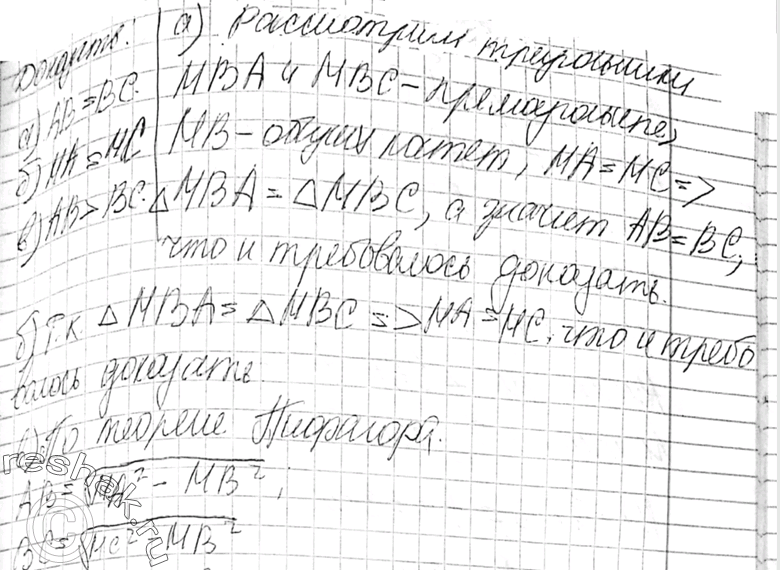 Доказать:
а) AB = BC.
б) MA = MC
в) AB > BC.
а) Рассмотрим треугольники
MBA и MBC – прямоугольные,
MB – общий катет, MA = MC =>
△MBA = △MBC, а значит AB = BC,
что и требовалось доказать.
б) Т.к △MBA = △MBC => MA = MC, что и требо
валось доказать.
в) По теореме Пифагора.
AB = √MA² - MB²;
BC = √MC² - MB²
reshak.ru